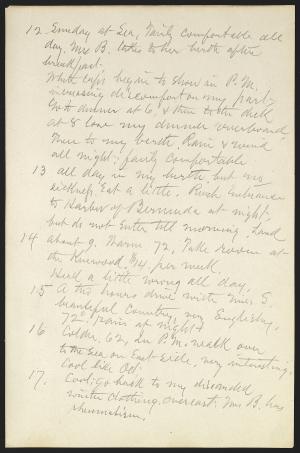 12 Sunday at Sea, Fairly comfortable all
day. Mrs B. takes to her birth after
breakfast.
White caps begin to show in P.M.
increasing discomfort on my part.
Go to dinner at 6, & then to the deck
at 8 lose my dinner overboard,
Then to my berth. Rain & wind
all night; fairly comfortable
13 all day in my birth but no
sickness, Eat a little. Reach Entrance
to Harbor of Bermuda at night,
but do not Enter till morning. Land
14 about 9. Warm 72, Take rooms at
the Kenwood $14. per week.
Feel a little wrong all day.
15 A two hours drive with Mrs. S.
beautiful Country, very Englishy,
72° rain at night
16 Colder, 62, In P.M. walk over
to the Sea on East side, very interesting,
Cool like Oct.
17. Cool; go back to my discarded
winter clothing. overcast: Mrs B. has
rheumatism.